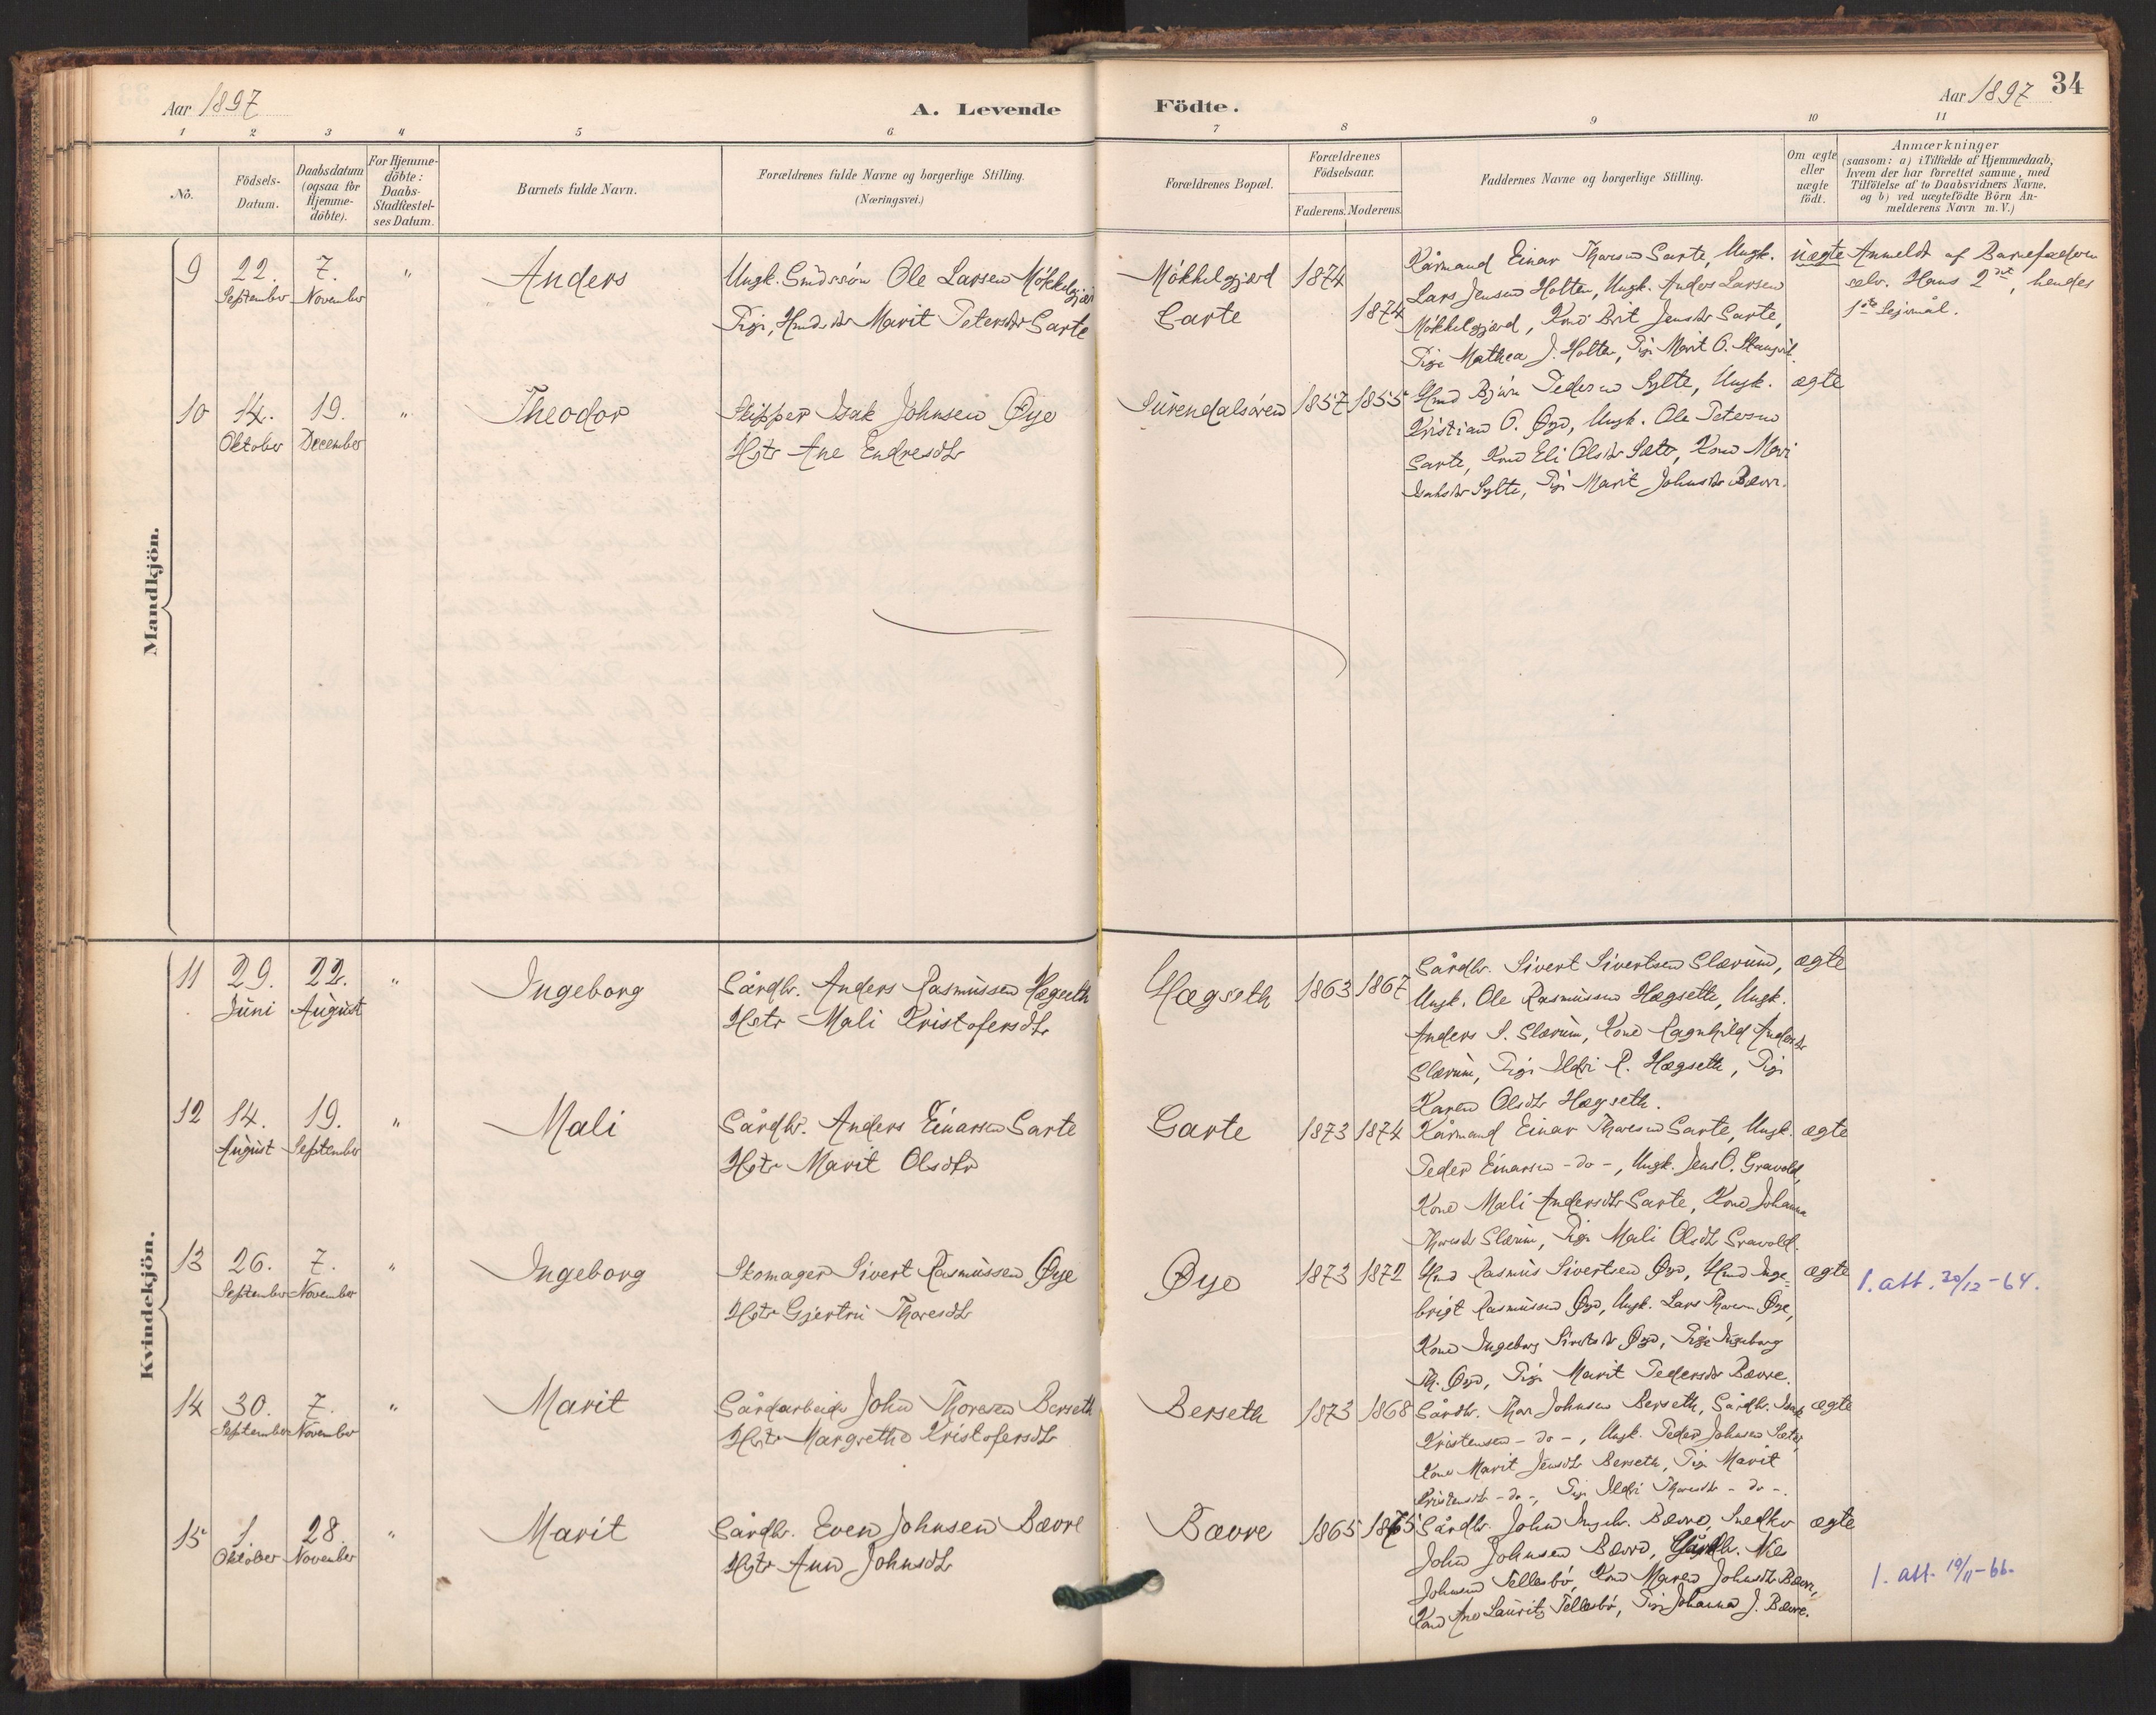 Aar 1897
A. Levende Födte.
Aar 1897 34
1 2 3 4 5 6 7 8 9 10 11
No.
Födsels-Datum.
Daabsdatum (ogsaa for Hjemmedöbte).
For Hjemmedöbte: Daabs-Stadfæstelses Datum.
Barnets fulde Navn.
Forældrenes fulde Navne og borgerlige Stilling. (Næringsvei.)
Forældrenes Bopæl.
Forældrenes Födselsaar.
Faderens. Moderens.
Faddernes Navne og borgerlige Stilling.
Om ægte eller uægte födt.
Anmærkninger
(saasom: a) i Tilfælde af Hjemmedaab,
hvem der har forrettet samme, med
Tilföielse af to Daabsvidners Navne,
og b) ved uægtefödte Börn Anmelderens Navn m. V.)
Mandkjön.
9 22. September 7. November " Anders
Ungk. Ole Larsen Mökkelgjærd
Pige, Marit Petersdtr Garte
Mökkelgjærd 1874
Garte 1874
Kårmand Einar Thoresen Garte, Ungk.
Lars Jensen Holten, Ungk. Anders Larsen
Mökkelgjærd, Kone Brit Jensdtr Garte,
Pige Mathea J. Holten, Pige Marit O.
uægte
Anmeldt af Barnefaderen
selv. Hans 2det, hendes
1ste Leiermål.
10 14. Oktober 19. December " Theodor
Skipper Isak Johnsen Øye
Hstr Ane Endresdtr
Surendalsøren 1857 1855
Hmd Björn Pedersen Sylte, Ungk.
Kristian O. Øye, Ungk. Ole Petersen
Garte, Kone Eli Olsdtr Sæter, Kone Mari
Isaksdtr Sylte, Pige Marit Johnsdtr Bævre.
ægte
Kvindekjön.
11 29. Juni 22. August " Ingeborg
Gårdbr. Anders Rasmussen Hægseth
Hstr Mali Kristofersdtr
Hægseth 1863 1867
Gårdbr. Sivert Sivertsen Glærum,
Ungk. Ole Rasmussen Hægseth, Ungk.
Anders S. Glærum, Kone Ragnhild Andersdtr
Glærum, Pige Ildri R. Hægseth, Pige
Karen Olsdtr Hægseth.
ægte
12 14. August 19. September " Mali
Gårdbr. Anders Einarsen Garte
Hstr Marit Olsdtr
Garte 1873 1874
Kårmand Einar Thoresen Garte, Ungk.
Peder Einarsen -do-, Ungk. Jens O. Gravold,
Kone Mali Andersdtr Garte, Kone Johanna
Thoresdtr Glærum, Pige Mali Olsdtr Gravold.
ægte
13 26. September 7. November " Ingeborg
Skomager Sivert Rasmussen Øye
Hstr Gjertru Thoresdtr
Øye 1873 1872
Hmd Rasmus Sivertsen Øye, Hmd Inge-
brigt Rasmussen Øye, Ungk. Lars Thoresen Øye,
Kone Ingeborg Sivertsdtr Øye, Pige Ingeborg
Th. Øye, Pige Marit Pedersdtr Bævre.
ægte
1. att. 20/12-64.
14 30. September 7. November " Marit
Gårdarbeider John Thoresen Berseth
Hstr Margrethe Kristofersdtr
Berseth 1873 1868
Gårdbr. Thore Johnsen Berseth, Gårdbr. Isak
Kristensen -do-, Ungk. Peder Johnsen Sæter,
Kone Marit Jensdtr Berseth, Pige Marit
Kristensdtr -do-, Pige Ildri Thoresdtr -do-.
ægte
15 1. Oktober 28. November " Marit
Gårdbr. Even Johnsen Bævre
Hstr Ane Johnsdtr
Bævre 1865 1865
Gårdbr. John Bævre, Snedker
John Johnsen Bævre, Gårdbr. Nils
Johnsen Tellesbö, Kone Maren Johnsdtr Bævre,
Kone Ane Tellesbö, Pige Johanna J. Bævre.
ægte
1. att. 19/11-66.